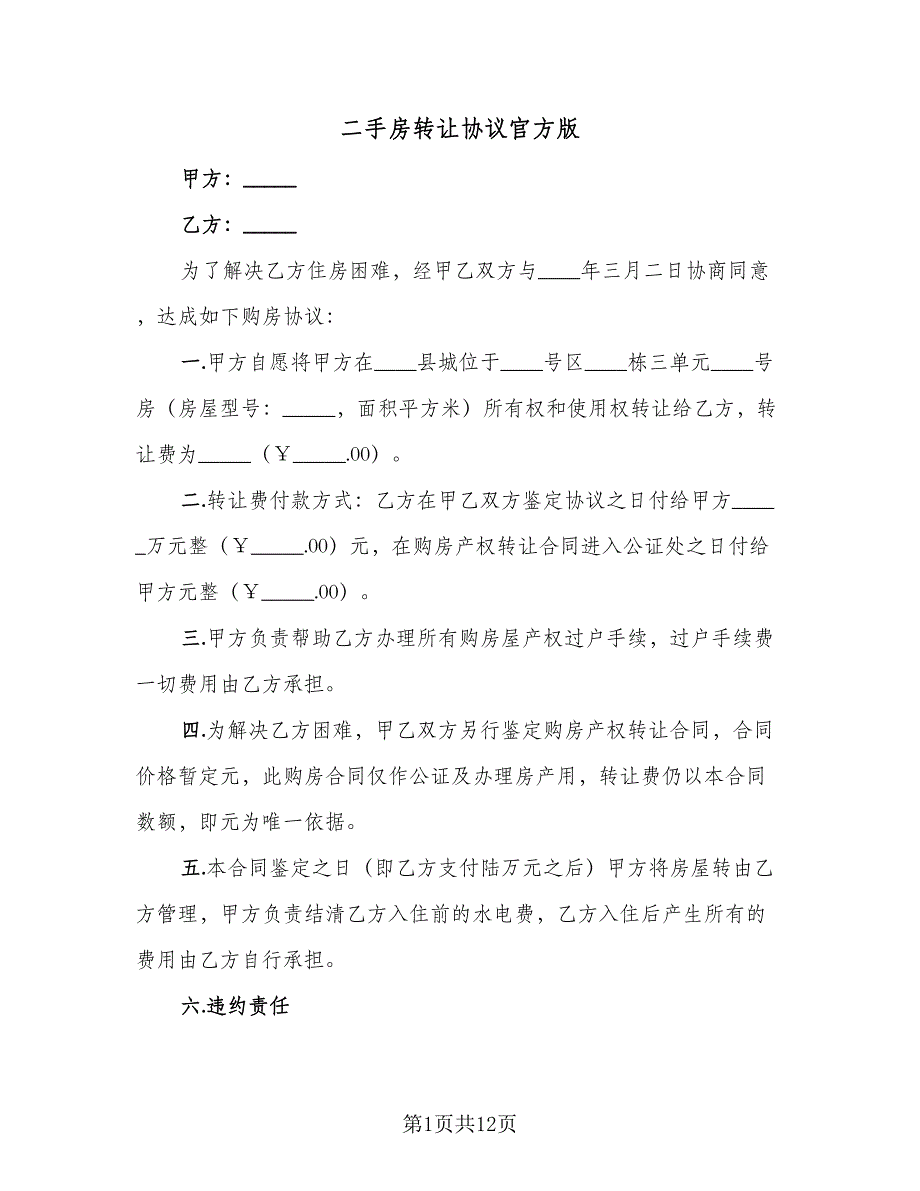 二手房转让协议官方版
甲方：_____
乙方：_____
为了解决乙方住房困难，经甲乙双方与____年三月二日协商同意
，达成如下购房协议：
一.甲方自愿将甲方在____县城位于____号区____栋三单元____号
房（房屋型号：_____，面积平方米）所有权和使用权转让给乙方，转
让费为_____（￥_____.00）。
二.转让费付款方式：乙方在甲乙双方鉴定协议之日付给甲方____
_万元整（￥_____.00）元，在购房产权转让合同进入公证处之日付给
甲方元整（￥_____.00）。
三.甲方负责帮助乙方办理所有购房屋产权过户手续，过户手续费
一切费用由乙方承担。
四.为解决乙方困难，甲乙双方另行鉴定购房产权转让合同，合同
价格暂定元，此购房合同仅作公证及办理房产用，转让费仍以本合同
数额，即元为唯一依据。
五.本合同鉴定之日（即乙方支付陆万元之后）甲方将房屋转由乙
方管理，甲方负责结清乙方入住前的水电费，乙方入住后产生所有的
费用由乙方自行承担。
六.违约责任
第1页共12页